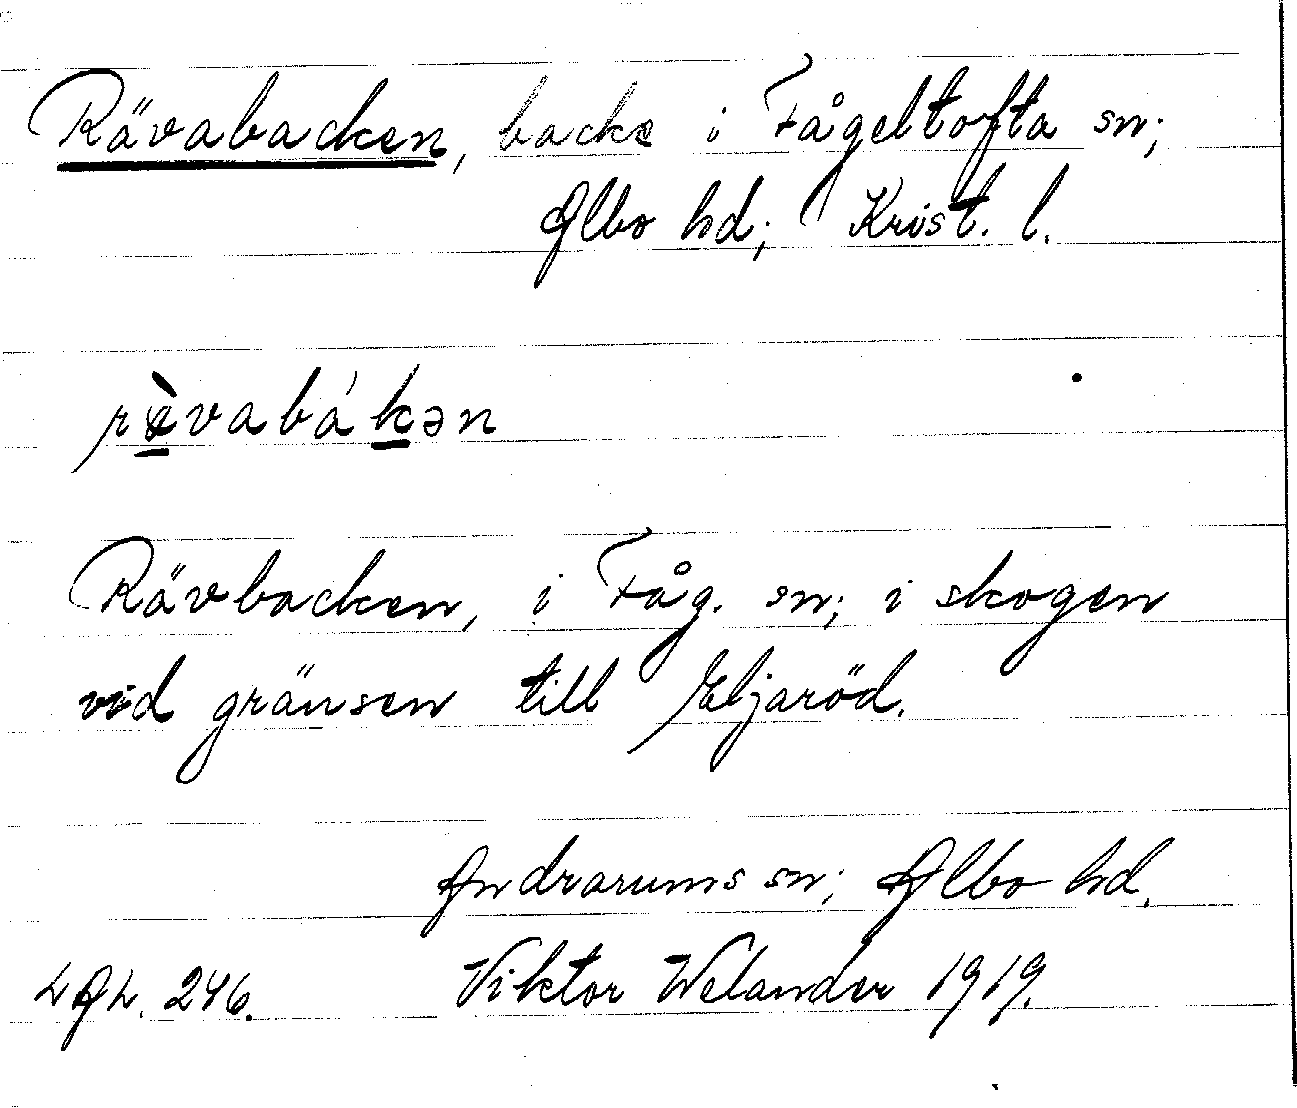 Rävabacken, backe i Fågeltofta sn;
Albo hd; Krist. l.
ræ̀vabákən
Rävbacken, i Fåg. sn; i skogen
vid gränsen till Eljaröd.
Andrarums sn; Albo hd.
LAL. 246. Viktor Welander 1919.